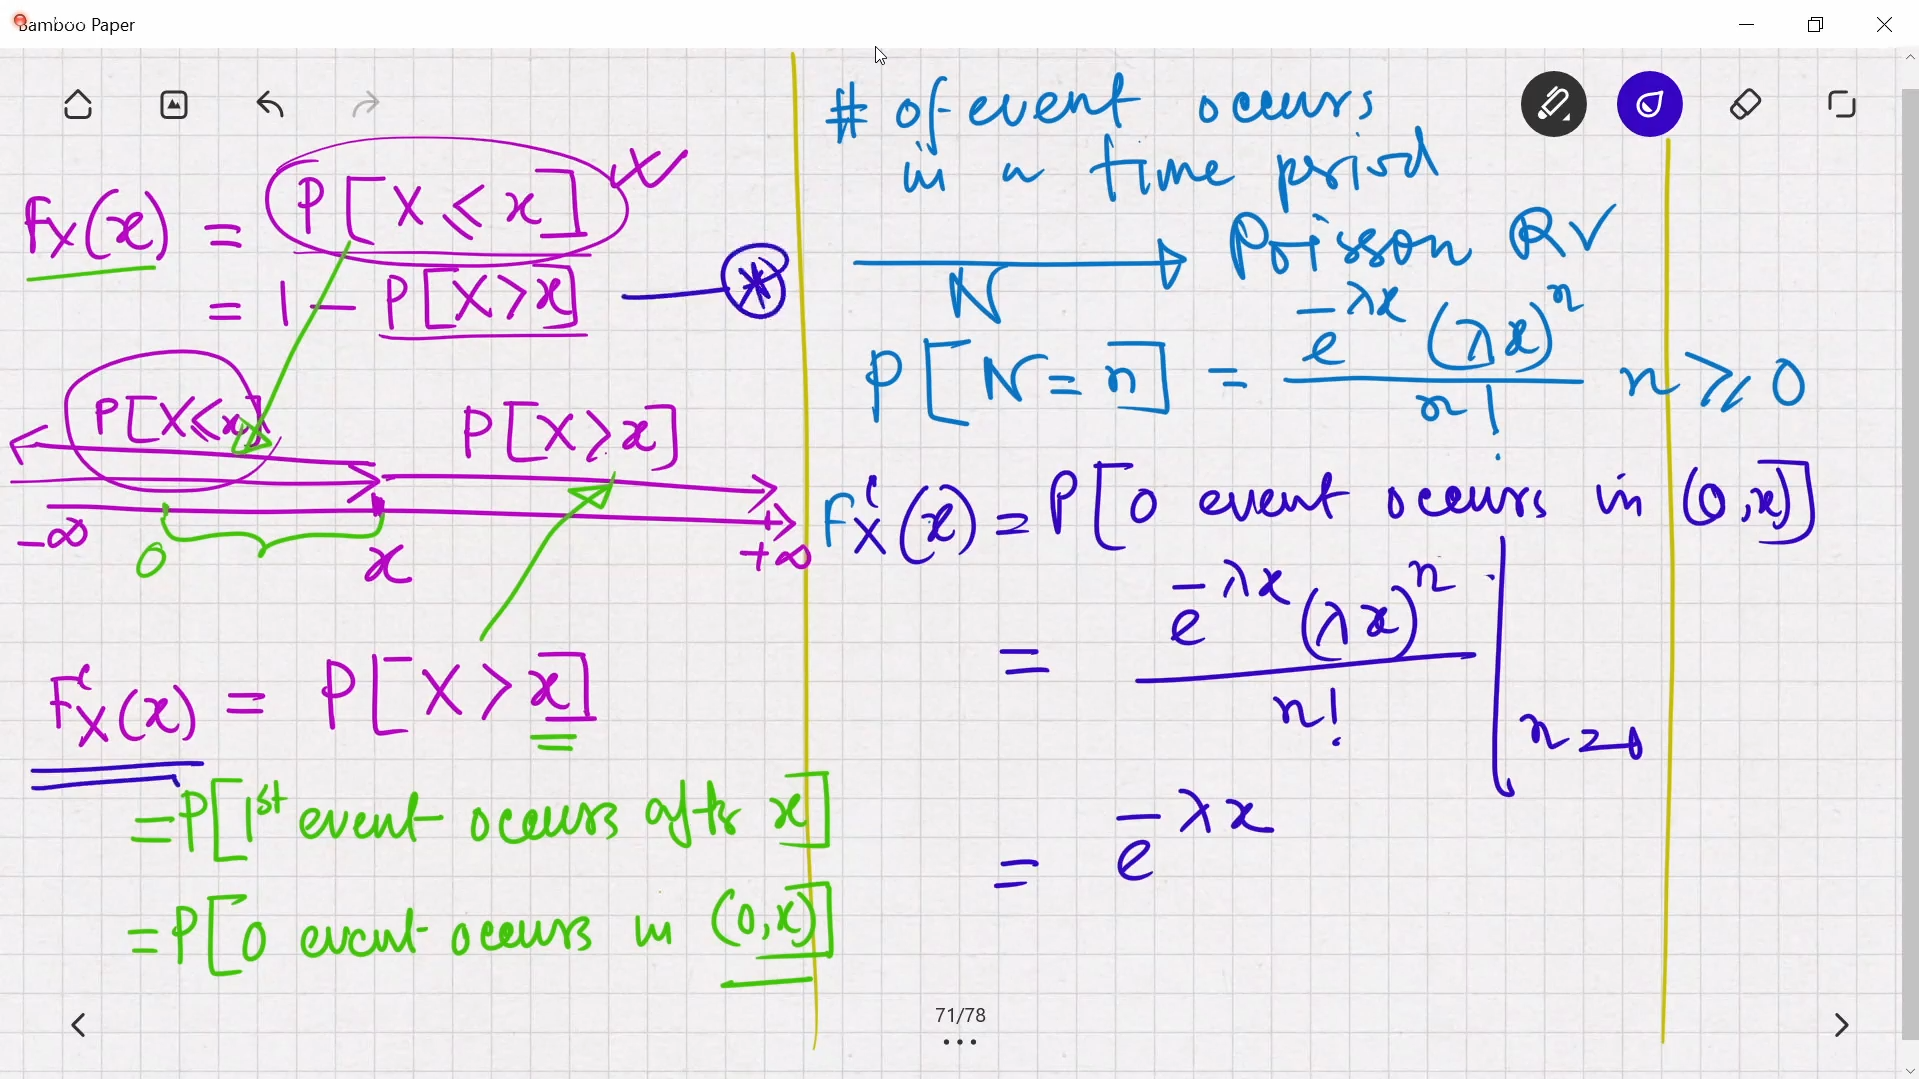 Bamboo Paper
F_X(x) = P[X ≤ x]
= 1 − P[X > x] — *
P[X ≤ x]
P[X > x]
−∞ 0 x +∞
F^c_X(x) = P[X > x]
= P[1st event occurs after x]
= P[0 event occurs in (0,x)]
# of event occurs
in a time period
N → Poisson RV
P[N = n] = e^{−λx} (λx)^n / n! n ⩾ 0
F^c_X(x) = P[0 event occurs in (0,x)]
= e^{−λx} (λx)^n / n! |_{n=0}
= e^{−λx}
71/78